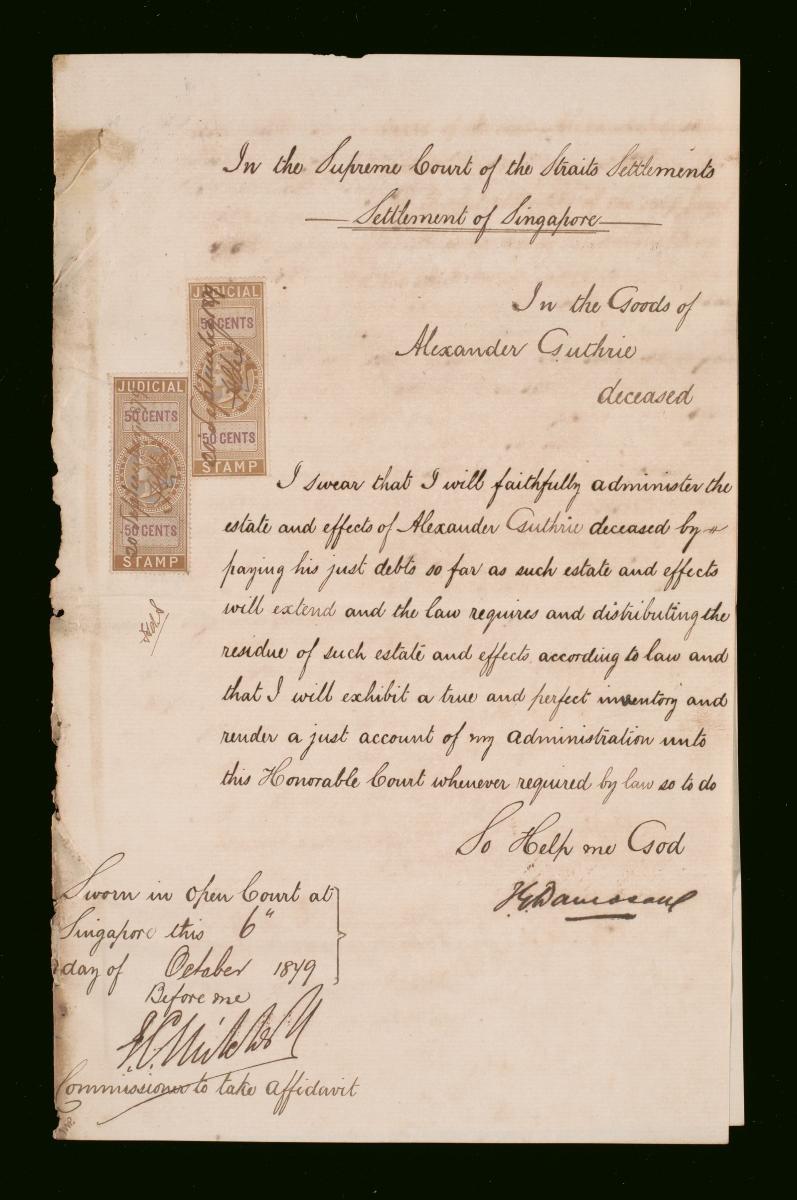 In the Supreme Court of the Straits Settlements
Settlement of Singapore
In the Goods of
Alexander Guthrie
deceased
JUDICIAL
50 CENTS
50 CENTS
STAMP
JUDICIAL
50 CENTS
50 CENTS
STAMP
I swear that I will faithfully administer the
estate and effects of Alexander Guthrie deceased by
paying his just debts so far as such estate and effects
will extend and the law requires and distributing the
residue of such estate and effects according to law and
that I will exhibit a true and perfect inventory and
render a just account of my administration unto
this Honorable Court whenever required by law so to do
So Help me God
Sworn in open Court at
Singapore this 6"
day of October 1879
Before me
Commissioner to take affidavit